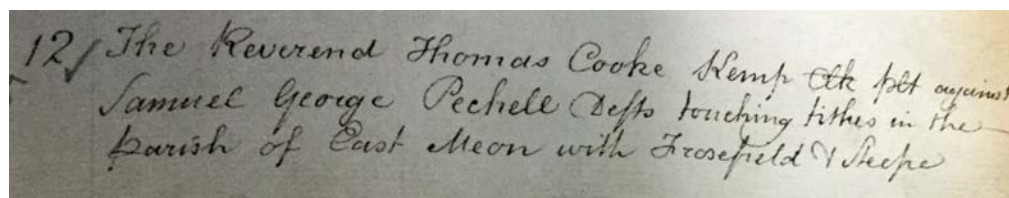 12/ The Reverend Thomas Cooke Kemp Clk plt against
Samuel George Pechell Defts touching tithes in the
parish of East Meon with Froxfield & Steepe